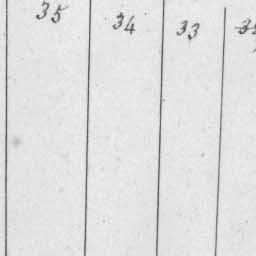 35 34 33